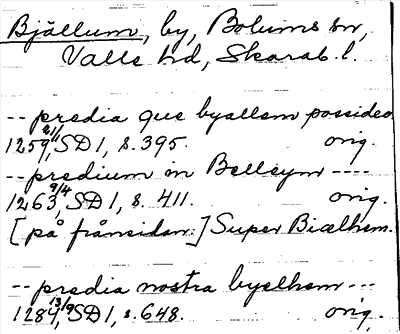 Bjällum, by, Bolums sn,
Valle hd, Skarab. l.
-- predia que byallem possideo
1259 21/1, SD 1, s. 395. orig.
-- predium in Belleym ----
1263 9/4, SD 1, s. 411. orig.
[på frånsidan:] Super Biælhem.
-- predia nostra byelhem ---
1284 13/9, SD 1, s. 648. orig.